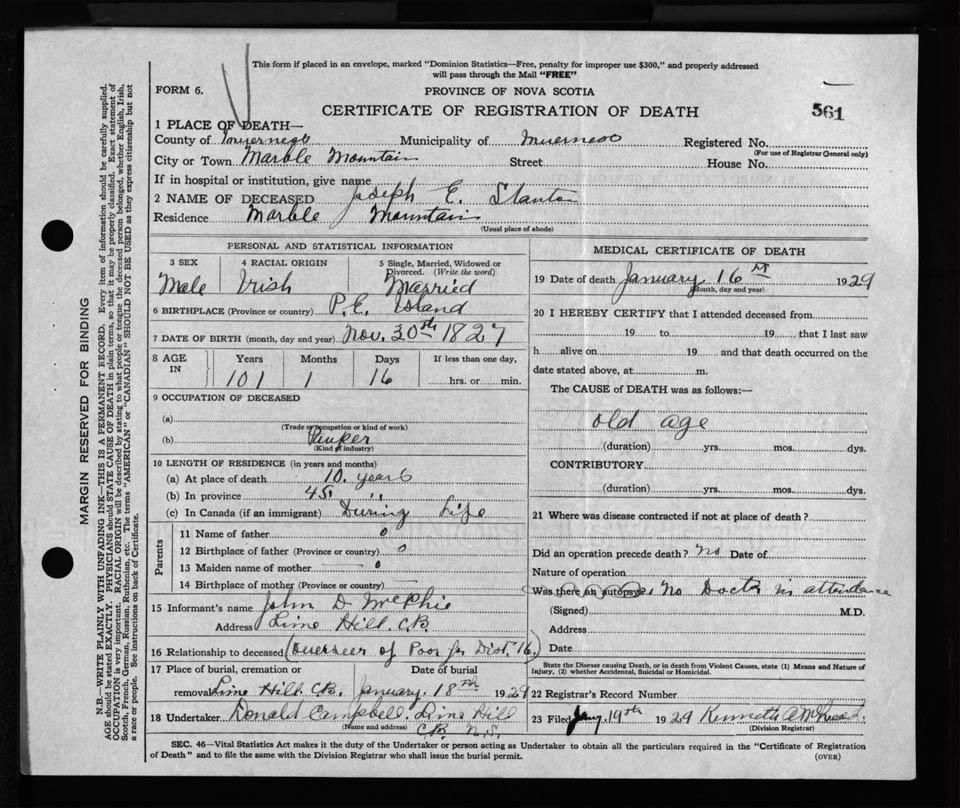 This form if placed in an envelope, marked "Dominion Statistics—Free, penalty for improper use $300," and properly addressed
will pass through the Mail "FREE"
FORM 6.
PROVINCE OF NOVA SCOTIA
561
CERTIFICATE OF REGISTRATION OF DEATH
1 PLACE OF DEATH—
County of Inverness Municipality of Inverness Registered No.
(For use of Registrar General only)
City or Town Marble Mountain Street House No.
If in hospital or institution, give name
2 NAME OF DECEASED Joseph E. Stanton
Residence Marble Mountain
(Usual place of abode)
PERSONAL AND STATISTICAL INFORMATION
3 SEX 4 RACIAL ORIGIN 5 Single, Married, Widowed or
Divorced. (Write the word)
Male Irish Married
6 BIRTHPLACE (Province or country) P.E. Island
7 DATE OF BIRTH (month, day and year) Nov. 30th 1827
8 AGE IN Years Months Days If less than one day,
101 1 16 hrs. or min.
9 OCCUPATION OF DECEASED
(a)
(Trade or occupation or kind of work)
(b) Pauper
(Kind of industry)
10 LENGTH OF RESIDENCE (in years and months)
(a) At place of death 10 years
(b) In province 45 "
(c) In Canada (if an immigrant) During Life
Parents
11 Name of father 0
12 Birthplace of father (Province or country) 0
13 Maiden name of mother 0
14 Birthplace of mother (Province or country)
15 Informant's name John D. McPhie
Address Lime Hill. C.B.
16 Relationship to deceased (Overseer of Poor for Dist. 16.)
17 Place of burial, cremation or Date of burial
removal Lime Hill. C.B. January. 18th 1929
18 Undertaker Donald Campbell. Lime Hill
(Name and address) C.B. N.S.
MEDICAL CERTIFICATE OF DEATH
19 Date of death January 16th 1929
(Month, day and year)
20 I HEREBY CERTIFY that I attended deceased from
19 to 19 that I last saw
h alive on 19 and that death occurred on the
date stated above, at m.
The CAUSE of DEATH was as follows:—
old age
(duration) yrs. mos. dys.
CONTRIBUTORY
(duration) yrs. mos. dys.
21 Where was disease contracted if not at place of death?
Did an operation precede death? No Date of
Nature of operation
Was there an autopsy? No Doctor in attendance
(Signed) M.D.
Address
Date
State the Disease causing Death, or in death from Violent Causes, state (1) Means and Nature of
Injury, (2) whether Accidental, Suicidal or Homicidal.
22 Registrar's Record Number
23 Filed Jany. 19th 1929 Kenneth A
(Division Registrar)
SEC. 46—Vital Statistics Act makes it the duty of the Undertaker or person acting as Undertaker to obtain all the particulars required in the "Certificate of Registration
of Death" and to file the same with the Division Registrar who shall issue the burial permit. (OVER)
MARGIN RESERVED FOR BINDING
N.B.—WRITE PLAINLY WITH UNFADING INK—THIS IS A PERMANENT RECORD. Every item of information should be carefully supplied.
AGE should be stated EXACTLY. PHYSICIANS should STATE CAUSE OF DEATH in plain terms, so that it may be properly classified. Exact statement of
OCCUPATION is very important. RACIAL ORIGIN will be described by stating to what people or tongue the deceased person belonged, whether English, Irish,
Scotch, French, German, Russian, Ruthenian, etc. The terms "AMERICAN" or "CANADIAN" SHOULD NOT BE USED as they express citizenship but not
a race or people. See instructions on back of Certificate.